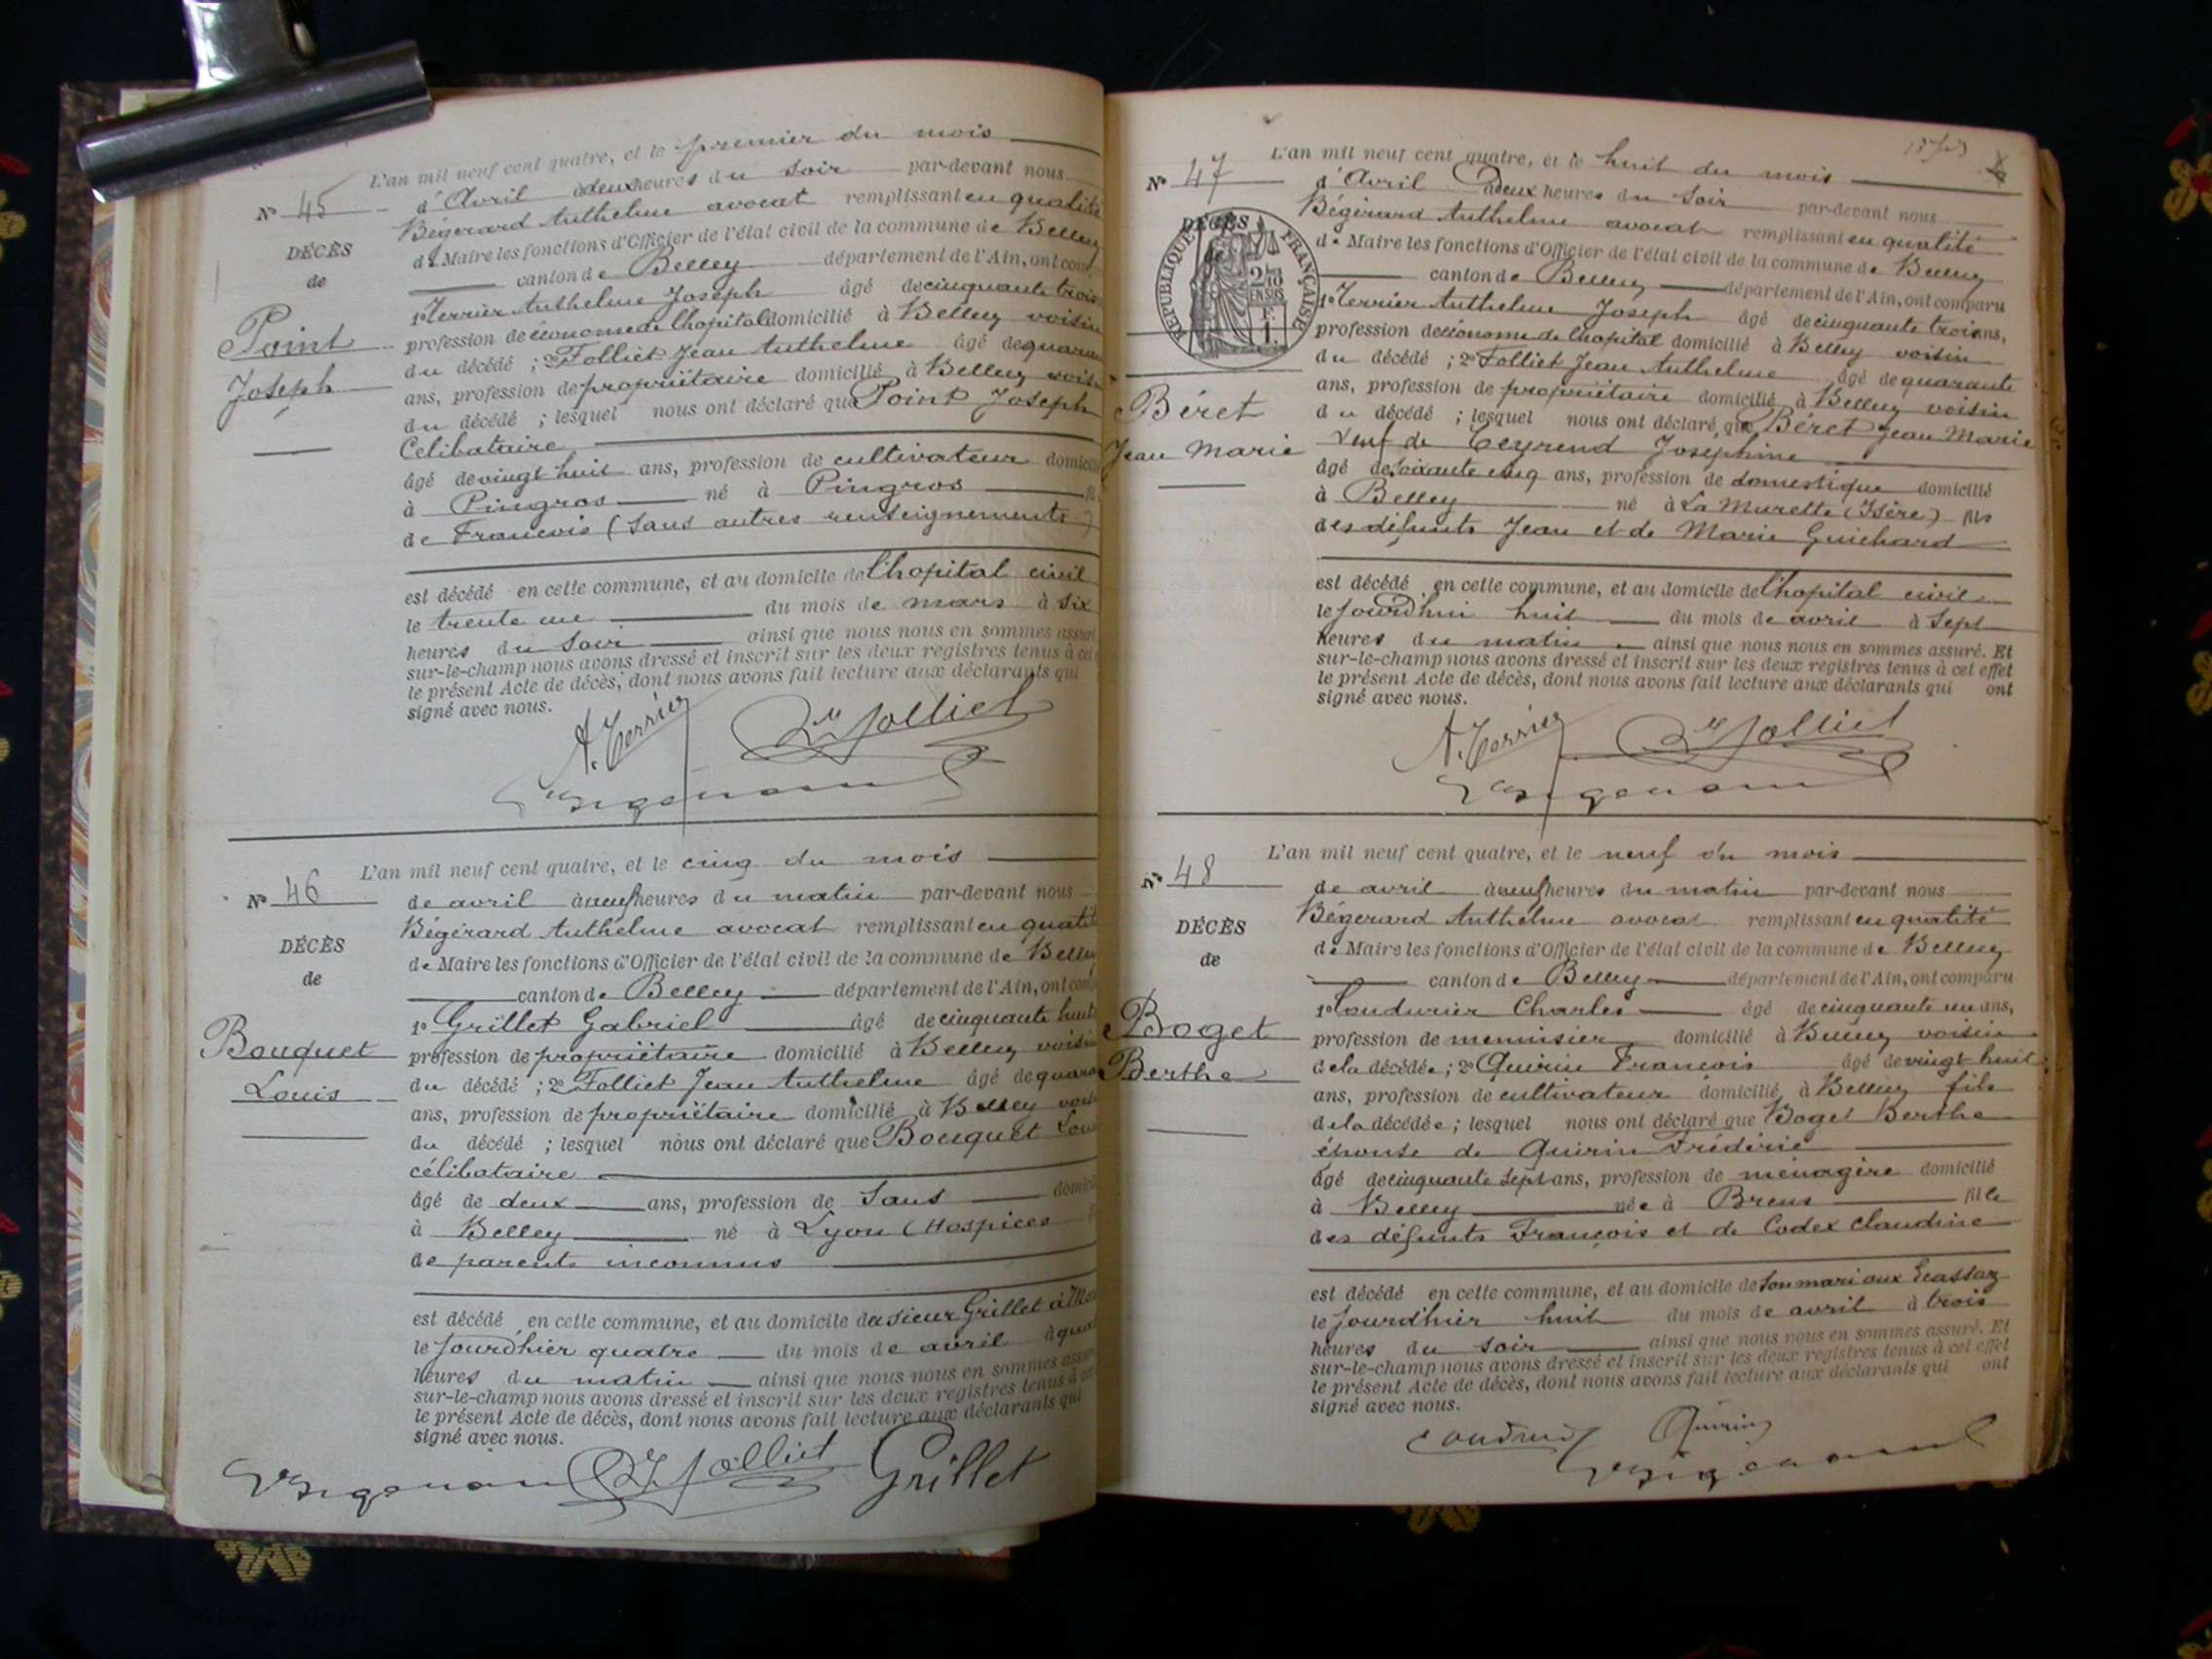 L'an mil neuf cent quatre, et le premier du mois
N° 45
d'Avril à deux heures du soir par-devant nous
Bégérard Anthelme avocat remplissant en qualité
DÉCÈS
de Maire les fonctions d'Officier de l'état civil de la commune de Belley
de
canton de Belley département de l'Ain, ont com
1° Terrier Anthelme Joseph âgé de cinquante trois
Point
profession de économe de l'hopital domicilié à Belley voisin
Joseph
du décédé ; 2° Folliet Jean Anthelme âgé de quaran
ans, profession de propriétaire domicilié à Belley voisin
du décédé ; lesquel nous ont déclaré que Point Joseph
Célibataire
âgé de vingt huit ans, profession de cultivateur domicilié
à Pingros né à Pingros
de Francois (sans autres renseignements)
est décédé en cette commune, et au domicile de l'hopital civil
le trente un du mois de mars à six
heures du Soir ainsi que nous nous en sommes assuré
sur-le-champ nous avons dressé et inscrit sur les deux registres tenus à cet
le présent Acte de décès, dont nous avons fait lecture aux déclarants qui
signé avec nous.
A. Terrier Folliet
L'an mil neuf cent quatre, et le cinq du mois
N° 46
de avril à neuf heures du matin par-devant nous
Bégérard Anthelme avocat remplissant en qualité
DÉCÈS
de Maire les fonctions d'Officier de l'état civil de la commune de Belley
de
canton de Belley département de l'Ain, ont com
1° Grillet Gabriel âgé de cinquante huit
Bouquet
profession de propriétaire domicilié à Belley voisin
Louis
du décédé ; 2° Folliet Jean Anthelme âgé de quaran
ans, profession de propriétaire domicilié à Belley voisin
du décédé ; lesquel nous ont déclaré que Bouquet Lou
célibataire
âgé de deux ans, profession de Sans domicilié
à Belley né à Lyon (Hospices
de parents inconnus
est décédé en cette commune, et au domicile du sieur Grillet à
le jourd'hier quatre du mois de avril à
heures du matin ainsi que nous nous en sommes assuré
sur-le-champ nous avons dressé et inscrit sur les deux registres tenus à cet
le présent Acte de décès, dont nous avons fait lecture aux déclarants qui
signé avec nous.
Folliet Grillet
L'an mil neuf cent quatre, et le huit du mois
N° 47
d'Avril à deux heures du Soir par-devant nous
Bégérard Anthelme avocat remplissant en qualité
DÉCÈS
RÉPUBLIQUE FRANÇAISE
de Maire les fonctions d'Officier de l'état civil de la commune de Belley
canton de Belley département de l'Ain, ont comparu
1° Terrier Anthelme Joseph âgé de cinquante trois ans,
profession de économe de l'hopital domicilié à Belley voisin
du décédé ; 2° Folliet Jean Anthelme âgé de quarante
ans, profession de propriétaire domicilié à Belley voisin
Béret
du décédé ; lesquel nous ont déclaré que Béret Jean Marie
Jean Marie
veuf de Ceyrend Josephine
âgé de soixante cinq ans, profession de domestique domicilié
à Belley né à La Murette (Isère) fils
des défunts Jean et de Marie Guichard
est décédé en cette commune, et au domicile de l'hopital civil
le jourd'hui huit du mois de avril à Sept
heures du matin ainsi que nous nous en sommes assuré. Et
sur-le-champ nous avons dressé et inscrit sur les deux registres tenus à cet effet
le présent Acte de décès, dont nous avons fait lecture aux déclarants qui ont
signé avec nous.
A. Terrier Folliet
L'an mil neuf cent quatre, et le neuf du mois
N° 48
de avril à neuf heures du matin par-devant nous
Bégérard Anthelme avocat remplissant en qualité
DÉCÈS
de Maire les fonctions d'Officier de l'état civil de la commune de Belley
de
canton de Belley département de l'Ain, ont comparu
1° Coudurier Charles âgé de cinquante un ans,
Boget
profession de menuisier domicilié à Belley voisin
Berthe
de la décédée ; 2° Quirin Francois âgé de vingt huit
ans, profession de cultivateur domicilié à Belley fils
de la décédée ; lesquel nous ont déclaré que Boget Berthe
épouse de Quirin Frédéric
âgé de cinquante Sept ans, profession de ménagère domicilié
à Belley née à Brens fille
des défunts François et de Codex Claudine
est décédé en cette commune, et au domicile de Son mari aux Ecassaz
le jourd'hier huit du mois de avril à trois
heures du soir ainsi que nous nous en sommes assuré. Et
sur-le-champ nous avons dressé et inscrit sur les deux registres tenus à cet effet
le présent Acte de décès, dont nous avons fait lecture aux déclarants qui ont
signé avec nous.
Quirin